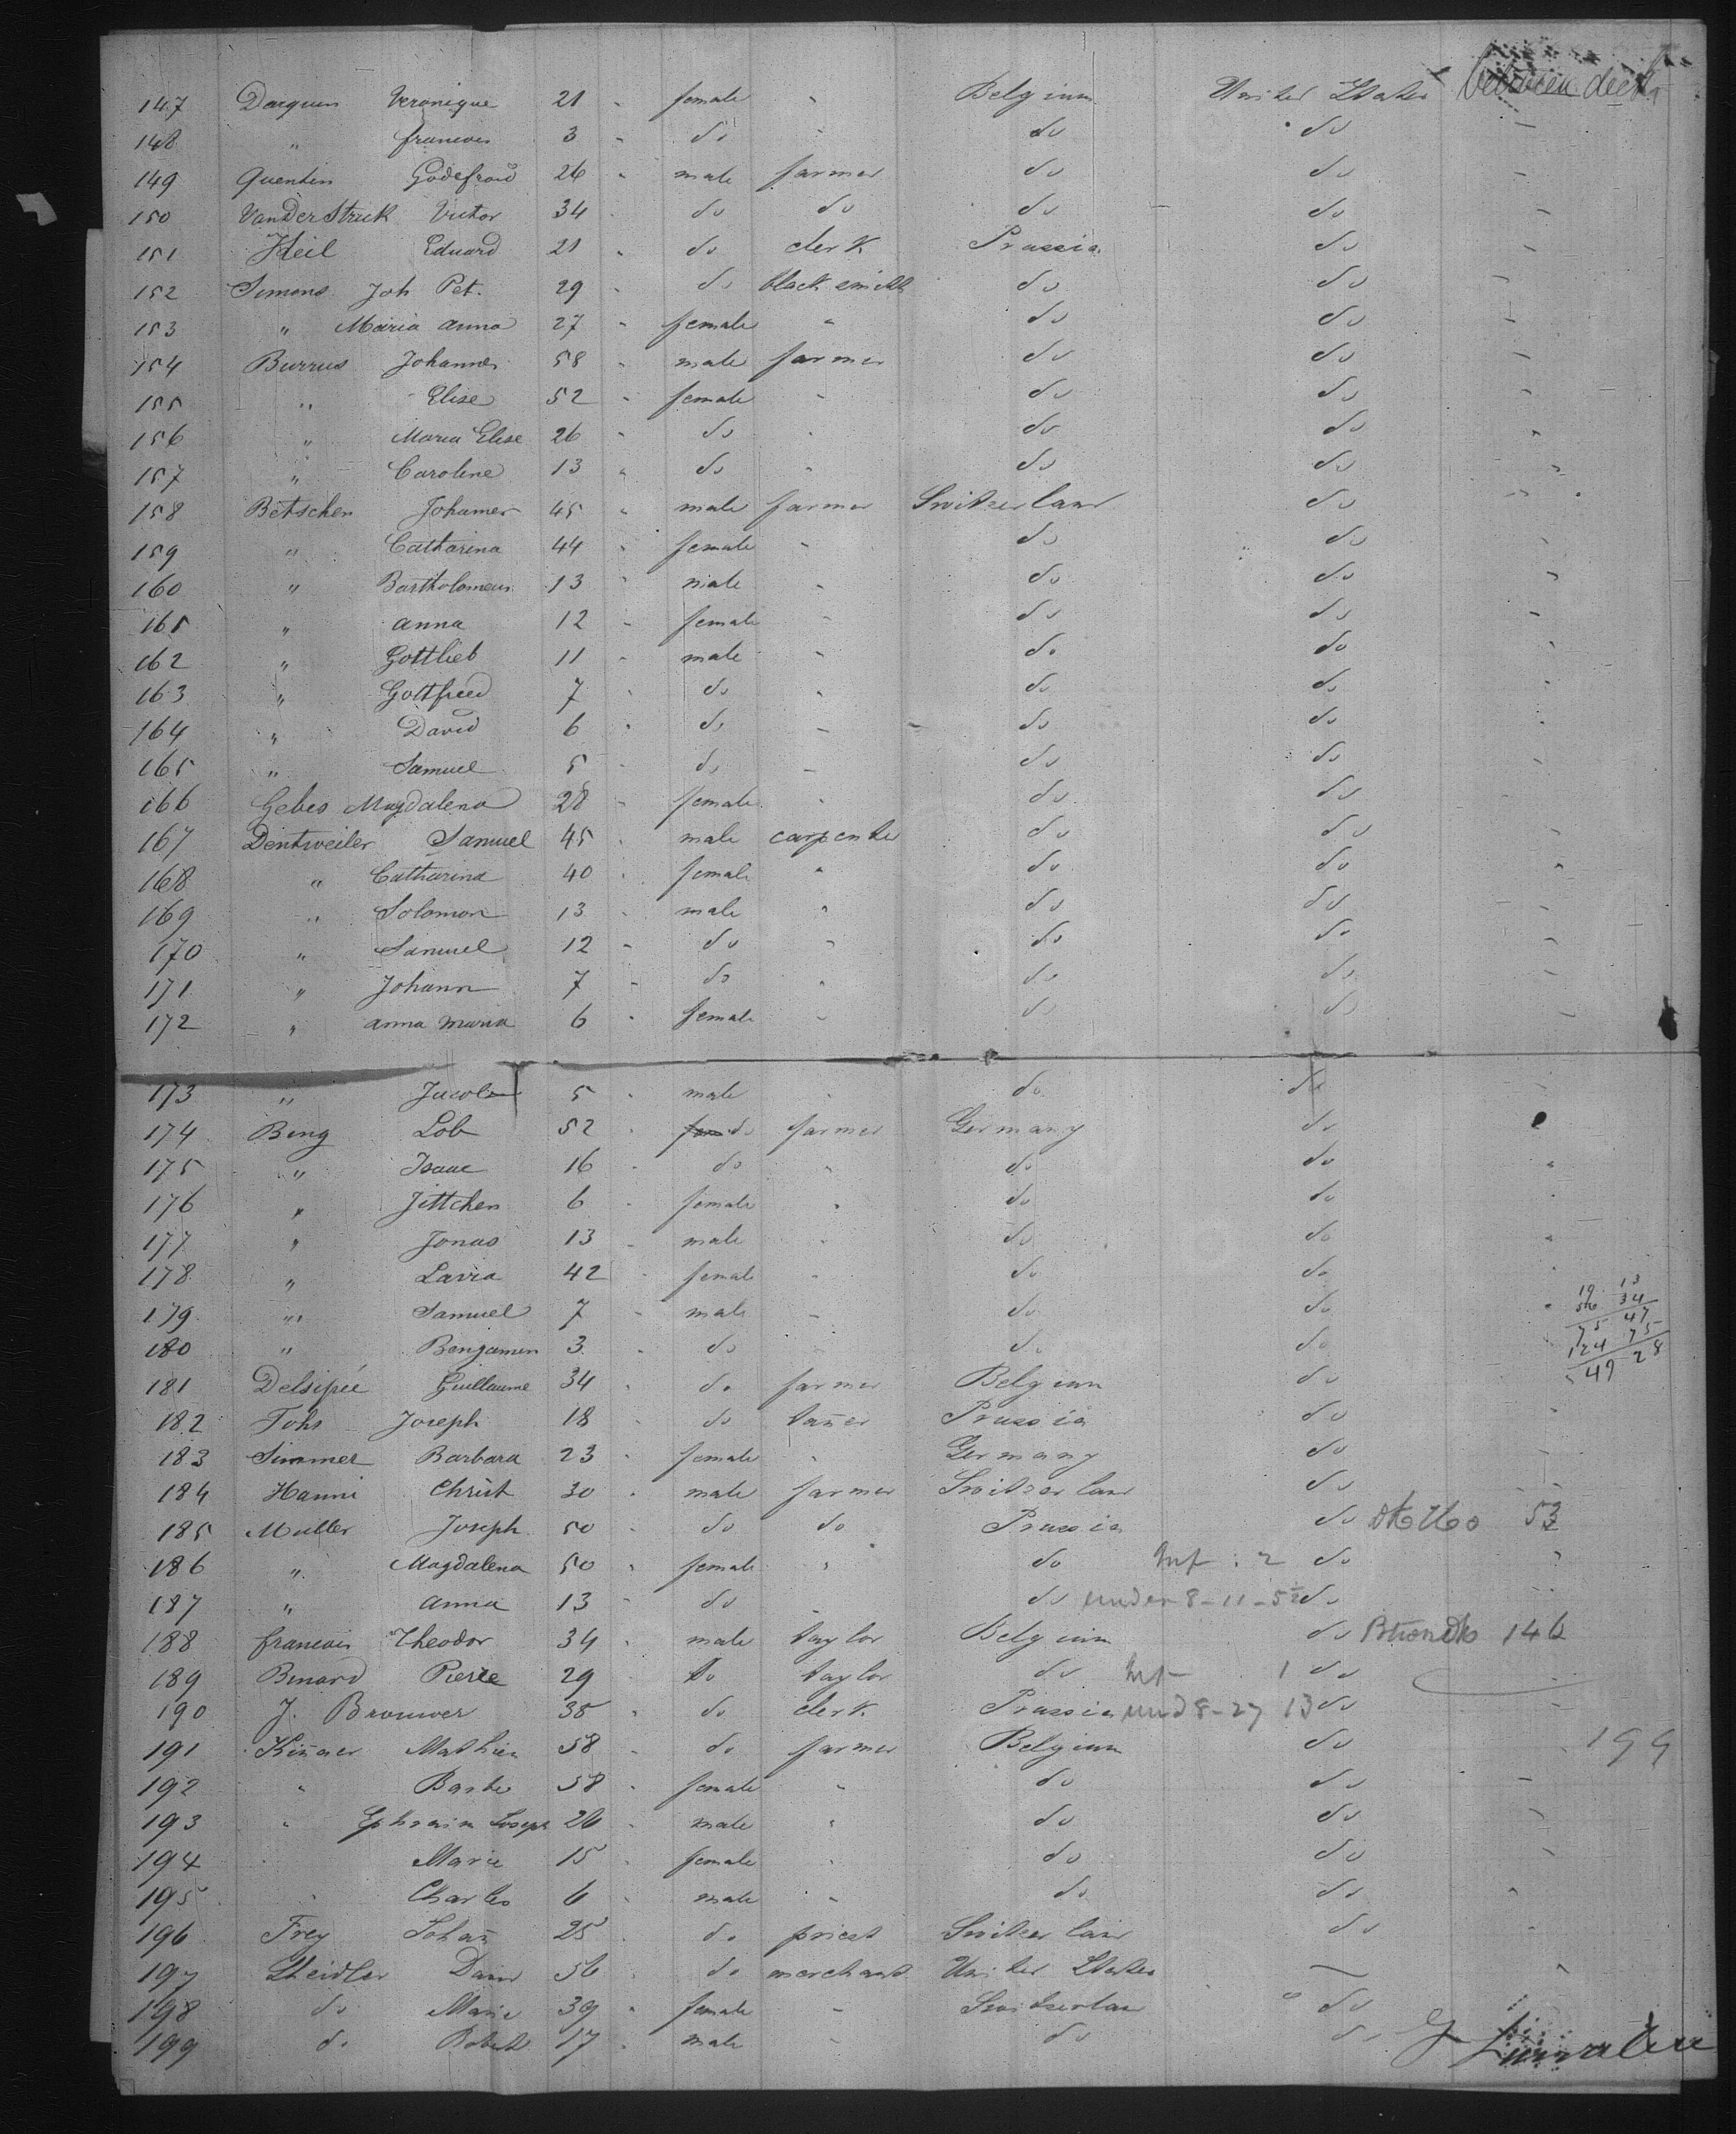 147 Darquen Veronique 21 - female - Belgium United States between decks
148 " francois 3 - do - do do -
149 Quentin Godefroid 26 - male farmer do do -
150 VanderStruck Victor 34 - do do do do -
151 Heil Eduard 21 - do clerk Prussia do -
152 Simons Joh Pet. 29 - do blacksmith do do -
153 " Maria Anna 27 - female - do do -
154 Burrus Johannes 58 - male farmer do do -
155 " Elise 52 - female - do do -
156 " Maria Elise 26 - do - do do -
157 " Caroline 13 - do - do do -
158 Betschen Johannes 45 - male farmer Switzerland do -
159 " Catharina 44 - female - do do -
160 " Bartholomeus 13 - male - do do -
161 " Anna 12 - female - do do -
162 " Gottlieb 11 - male - do do -
163 " Gottfried 7 - do - do do -
164 " David 6 - do - do do -
165 " Samuel 5 - do - do do -
166 Gebes Magdalena 28 - female - do do -
167 Dentweiler Samuel 45 - male carpenter do do -
168 " Catharina 40 - female - do do -
169 " Solomon 13 - male - do do -
170 " Samuel 12 - do - do do -
171 " Johann 7 - do - do do -
172 " Anna Maria 6 - female - do do -
173 " Jacob 5 - male - do do -
174 Beng Lob 52 - do farmer Germany do
175 " Isaac 16 - do - do do -
176 " Jittchen 6 - female - do do -
177 " Jonas 13 - male - do do -
178 " Lavia 42 - female - do do -
179 " Samuel 7 - male - do do -
180 " Benjamin 3 - do - do do
19 13
56 34
75 47
124 75
49 28
181 Delsipée Guillaume 34 - do farmer Belgium do
182 Fohs Joseph 18 - do tañer Prussia do -
183 Simmer Barbara 23 - female - Germany do -
184 Hanni Christ 30 - male farmer Switzerland do -
185 Muller Joseph 50 - do do Prussia do 53
186 " Magdalena 50 - female - do Inf : 2 do -
187 " Anna 13 - do - do under 8 - 11 - 5½ do -
188 francois Theodor 34 - male taylor Belgium do 146
189 Benard Pierre 29 - do taylor do Inf - 1 do -
190 J. Brouwer 38 - do clerk Prussia und 8 - 27 13 do -
191 Kiñaer Mathieu 58 - do farmer Belgium do - 199
192 " Barbe 58 - female - do do -
193 " Ephraim Joseph 26 - male - do do -
194 Marie 15 - female - do do -
195 " Charles 6 - male - do do -
196 Frey Johañ 25 do priest Switzerland do -
197 Sheidler Dan 56 - do merchant United States - -
198 do Marie 39 - female - Switzerland do
199 do Robert 17 - male - do do